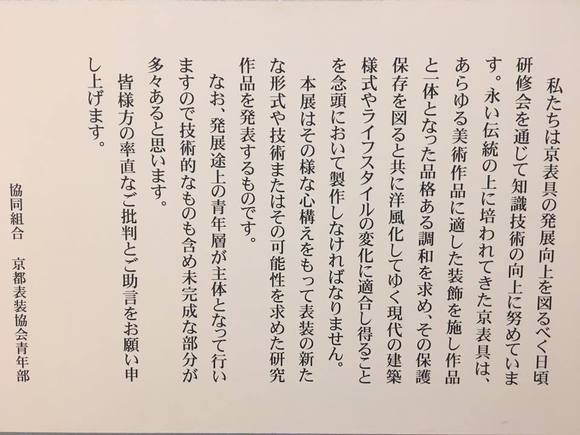 私たちは京表具の発展向上を図るべく日頃
研修会を通じて知識技術の向上に努めていま
す。永い伝統の上に培われてきた京表具は、
あらゆる美術作品に適した装飾を施し作品
と一体となった品格ある調和を求め、その保護
保存を図ると共に洋風化してゆく現代の建築
様式やライフスタイルの変化に適合し得ること
を念頭において製作しなければなりません。
本展はその様な心構えをもって表装の新た
な形式や技術またはその可能性を求めた研究
作品を発表するものです。
なお、発展途上の青年層が主体となって行い
ますので技術的なものも含め未完成な部分が
多々あると思います。
皆様方の率直なご批判とご助言をお願い申
し上げます。
協同組合　京都表装協会青年部